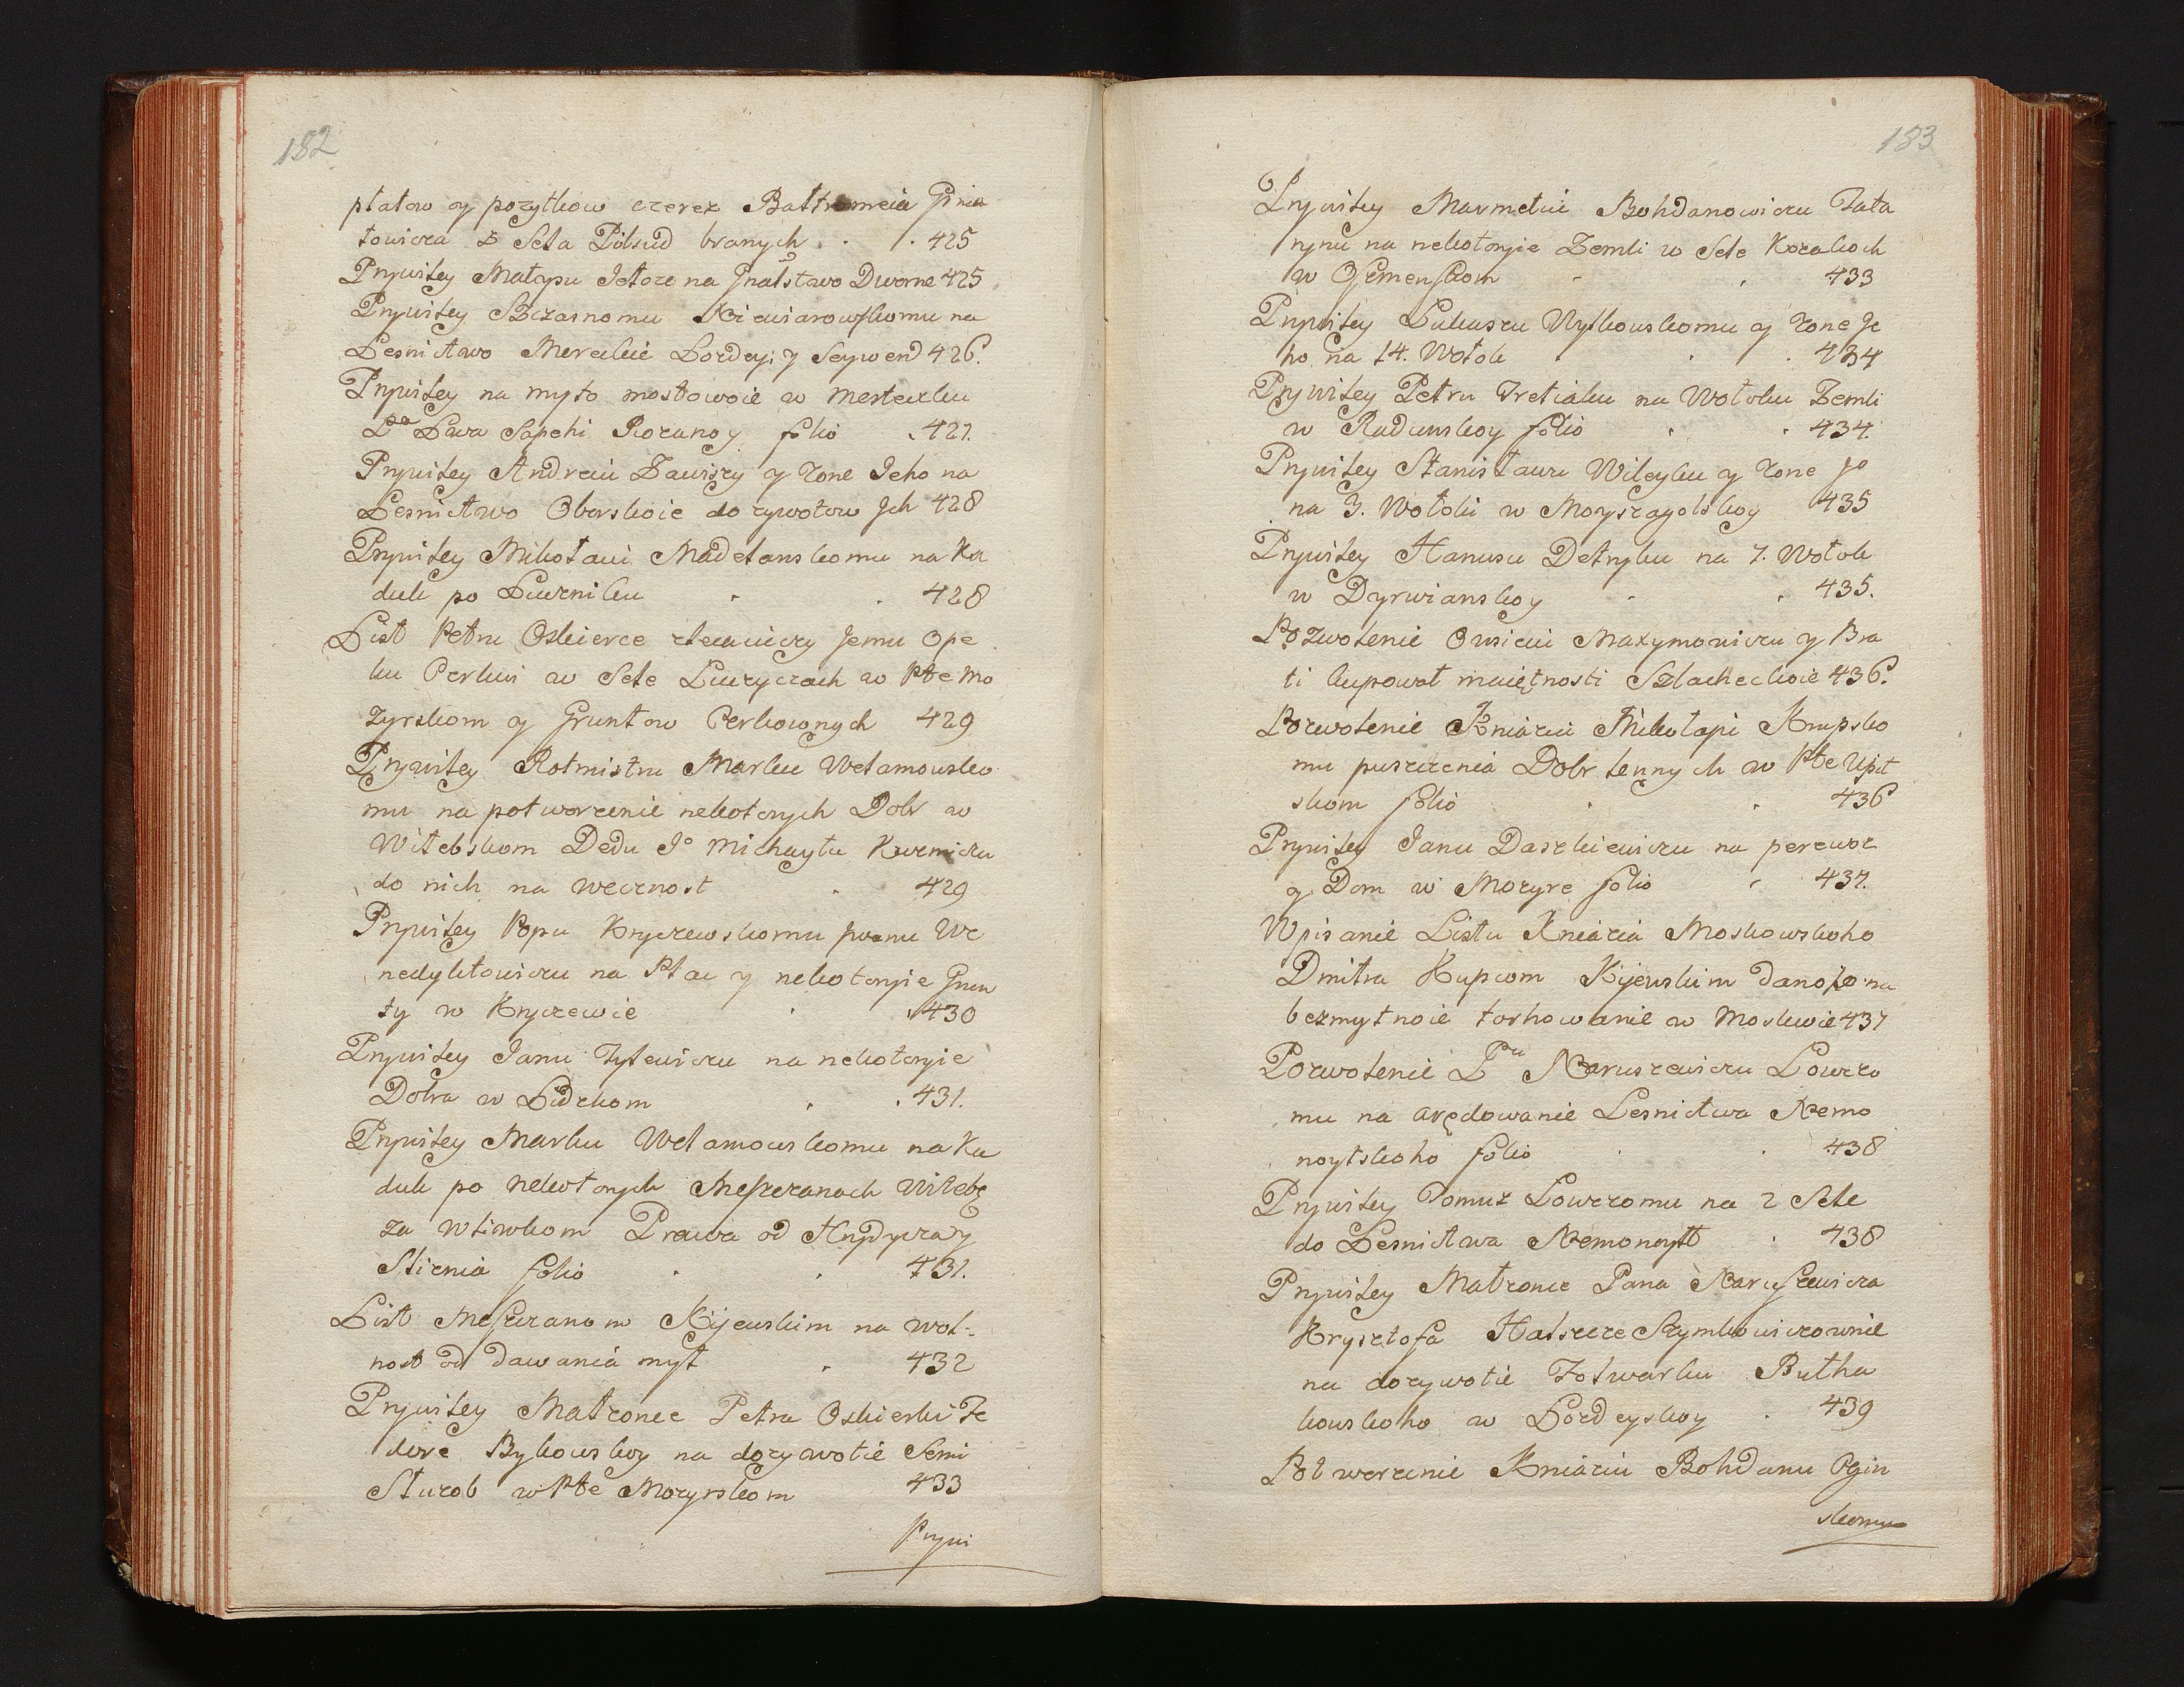 182
płatow y pozytkow czerez Bałtromeia Gnia
towicza z Seła Pilsud branych . . 425
Prywiley Małypu Jetoze na Gnalstwo Dworne 425
Prywiley Szczasnomu Niewiarowskomu na
Lesnictwo Mereckie Łozdey: y Seywend 426.
Prywiley na myto mostowoie w mesteczku
Pna Lwa Sapehi Rozanoy folio . 427.
Prywiley Andreiu Zawiszy y Zone Jeho na
Lesnictwo Oborskoie do zywotow Jch 428
Prywiley Mikołaiu Madelanskomu na Ka
duk po Łuczniku . . 428
List Petru Oskierce zlecaiuczy Jemu Ope
ku Cerkwi w Sele Łuczyczach w Pte Mo
zyrskom y Gruntow Cerkownych 429
Prywiley Rotmistru Marku Welamowsko
mu na potworzenie nekotorych Dobr w
Witebskom Dedu Jo Michayłu Kuzmiczu
do nich na wecznost . 429
Prywiley Popu Kryczewskomu Jwanu We
nedyktowiczu na Plac y nekotoryie Grun
ty w Kryczewie . . 430
Prywiley Janu Tyszewiczu na nekotoryie
Dobra w Lidzkom . . 431.
Prywiley Marku Welamowskomu na Ka
duk po nekotorych Meszczanach Witebs
za wtiwkom Prawa od Hrydycza y
Stienia folio . . 431.
List Meszczanom Kijewskim na wol-
nost od dawania myt . 432
Prywiley Małzonce Petra Oskierki Fe
dore Bykowskoy na dozywotie Semi
Służob w Pte Mozyrskom 433
Prywi
183
Prywiley Marmetiu Bohdanowiczu Tata
rynu na nekotoryie Zemli w Sele Kozakoch
w Oszmenskom . . 433
Prywiley Łukaszu Wyszkowskomu y Zone Je
ho na 14. Wołok . . 434
Prywiley Petru Tretiaku na Wołoku Zemli
w Radunskoy folio . . 434.
Prywiley Stanisławu Wileyku y Zone Jo
na 3. Wołoki w Moyszagolskoy 435
Prywiley Hanusu Detryku na 7. Wołok
w Dyrwianskoy . . 435.
Pozwolenie Owsieiu Maxymowiczu y Bra
ti kupowat maiętnosti Szlacheckoie 436.
Pozwolenie Kniaziu Mikołayu Krupsko
mu puszczenia Dobr lennych w Pte Upit
skom folio . . 436
Prywiley Janu Daszkiewiczu na perewoz
y Dom w Mozyre folio . 437.
Wpisanie Listu Kniazia Moskowskoho
Dmitra Kupcom Kijewskim danoho na
bezmytnoie torhowanie w Moskwie 437
Pozwolenie Pnu Naruszewiczu Łowczo
mu na arędowanie Lesnictwa Nemo
noytskoho folio . . 438
Prywiley Tomuz Łowczomu na 2 Sele
do Lesnictwa Nemonoytt . 438
Prywiley Małzonce Pana Naruszewicza
Krysztofa Halszce Szymkowiczownie
na dozywotie Folwarku Butha
kowskoho w Łozdeyskoy . 439
Potwerzenie Kniaziu Bohdanu Ogin
skomu